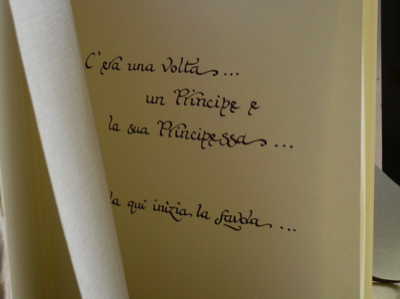 C'era una volta...
un Principe e
la sua Principessa...
da qui inizia la favola...